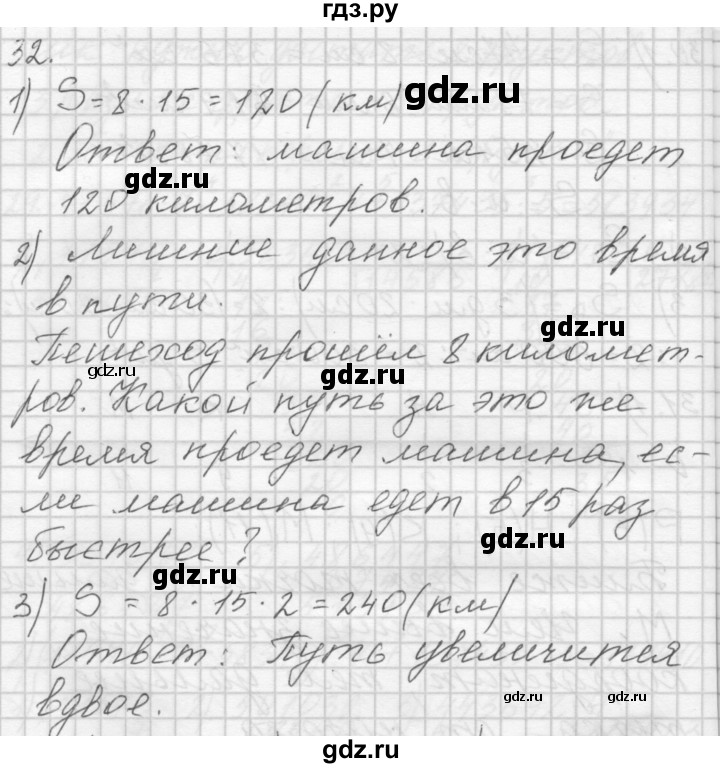 гдз.ру
32.
1) S = 8 · 15 = 120 (км)
gdz.ru
Ответ: машина проедет
gdz.ru
120 километров.
2) Лишние данное это время
в пути.
gdz.ru
Пешеход прошёл 8 километ-
gdz.ru
gdz.ru
ров. Какой путь за это же
время проедет машина, ес-
ли машина едет в 15 раз
gdz.ru
быстрее?
gdz.ru
3) S = 8 · 15 · 2 = 240 (км)
Ответ: Путь увеличится
вдвое.
gdz.ru
gdz.ru
gdz.ru